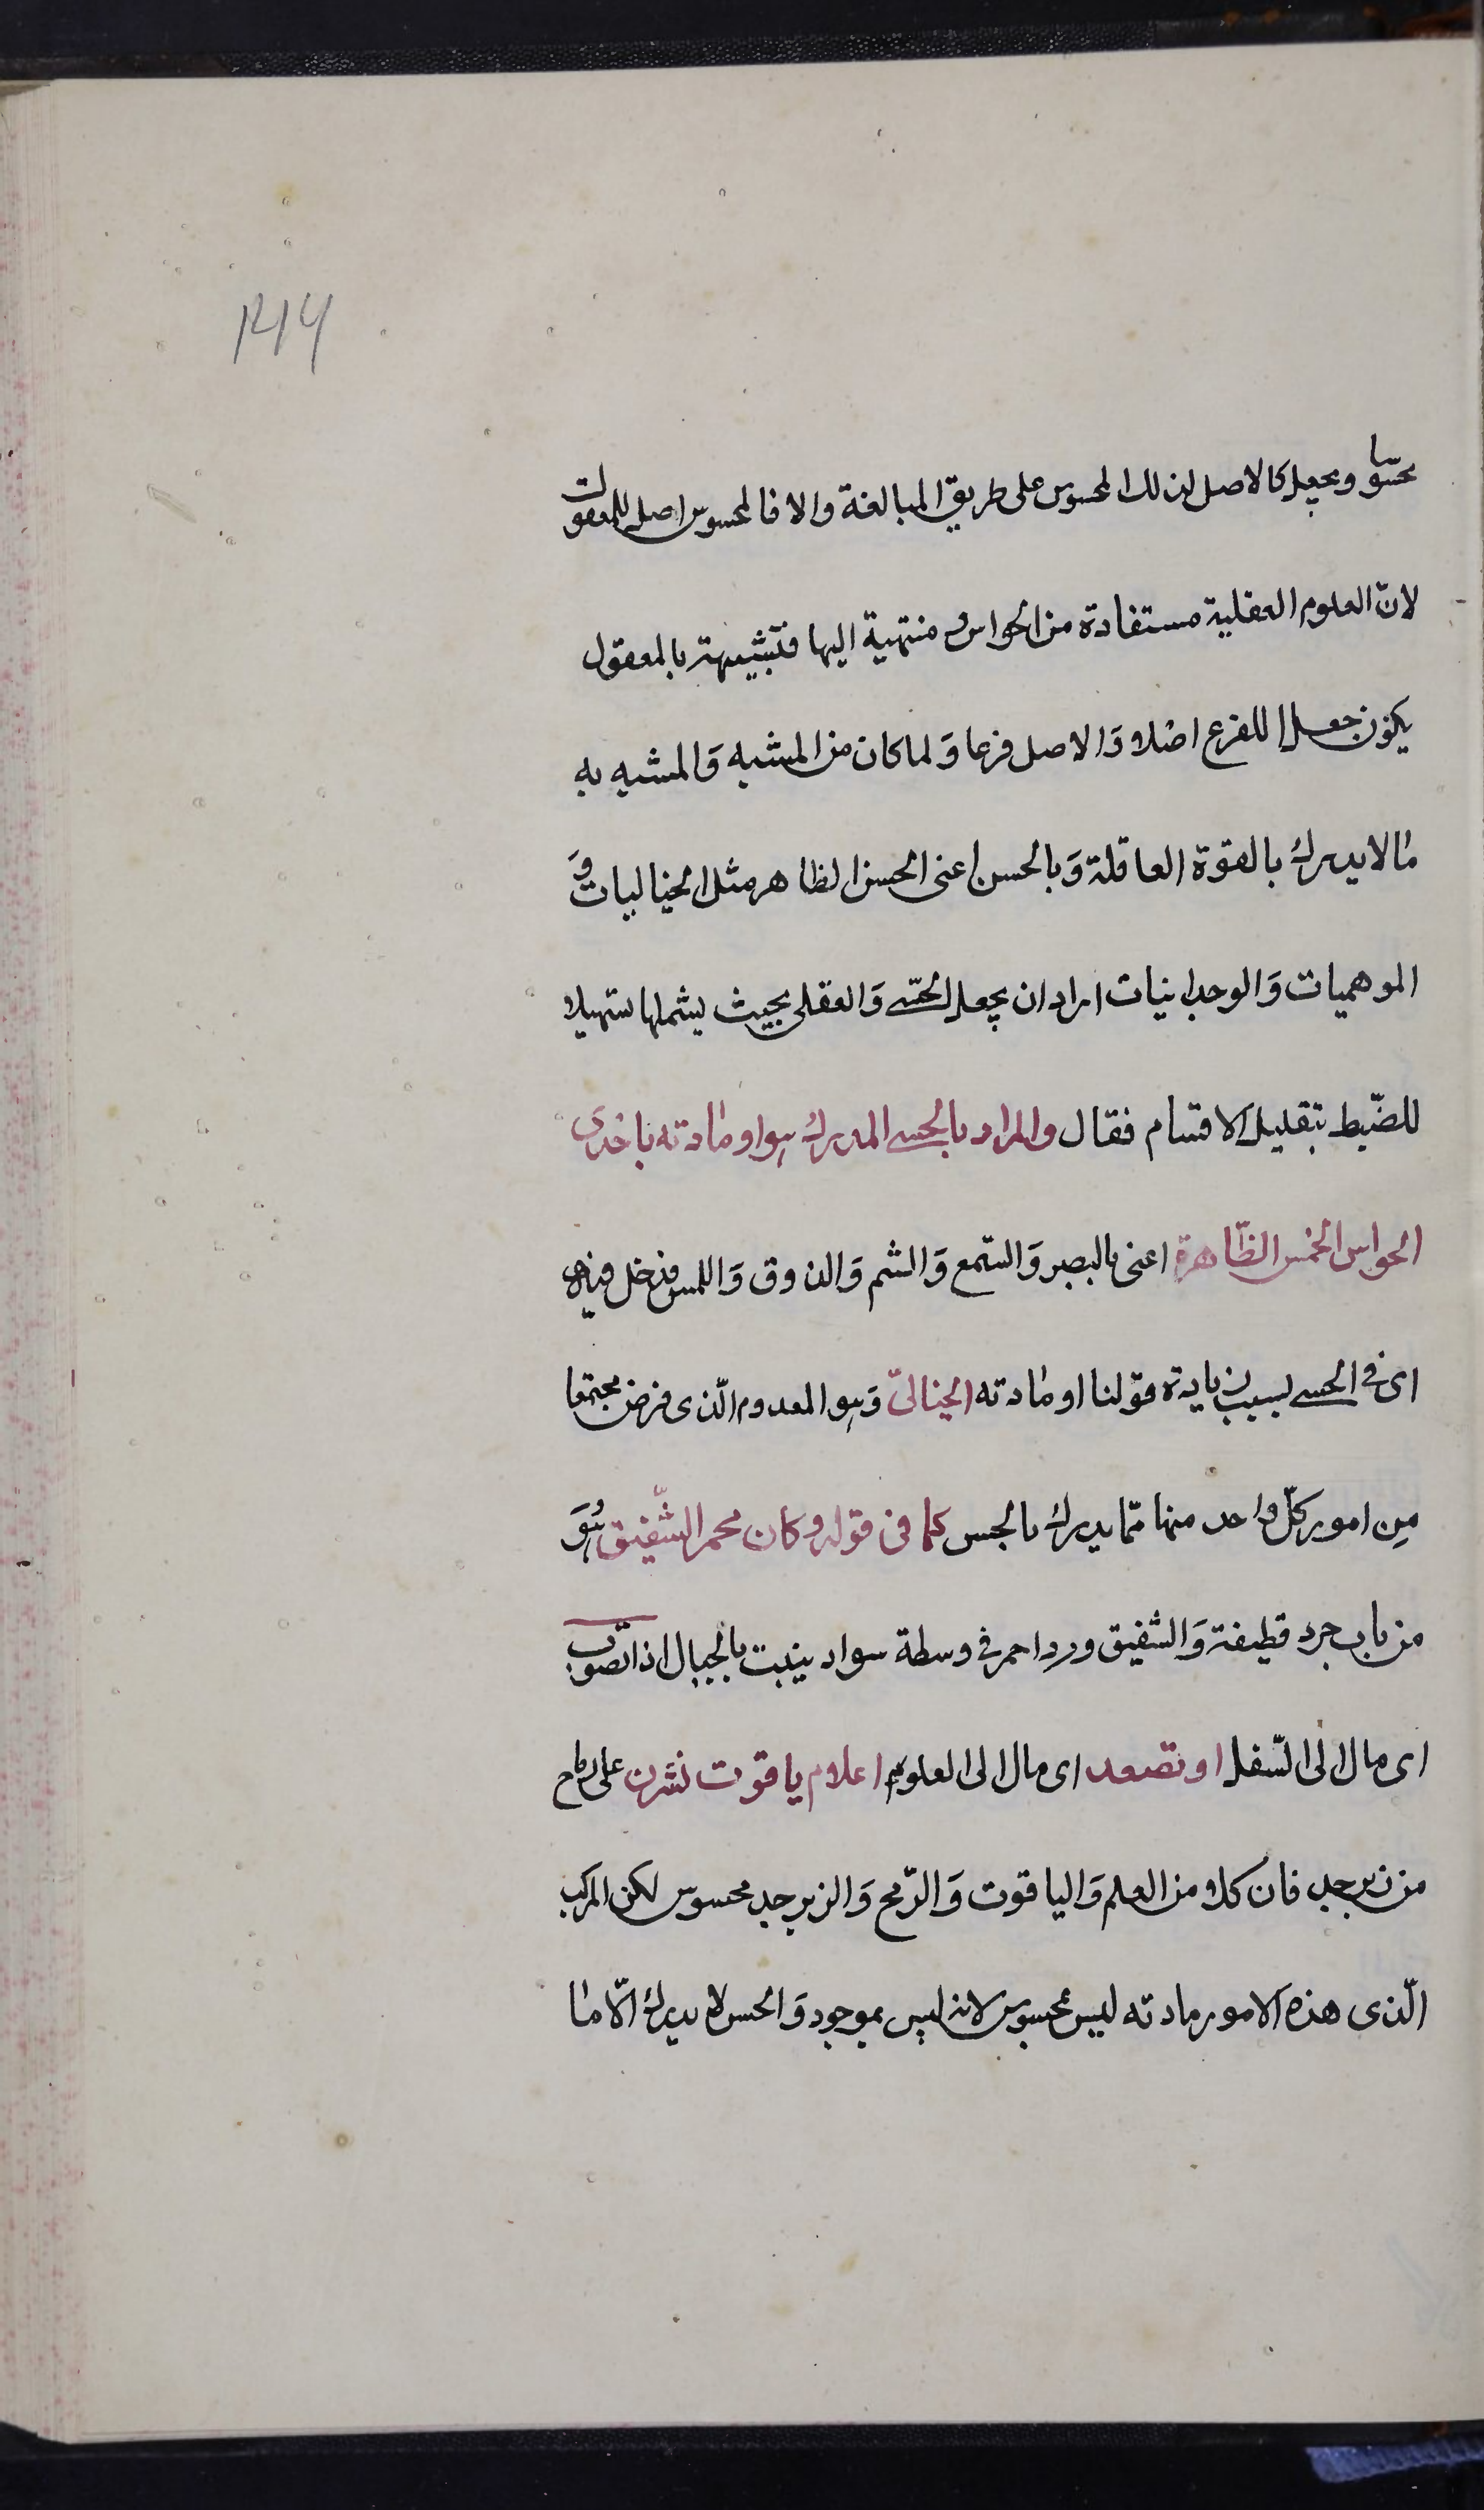 ۱۲۱۴
محسوسا ويجعل كالاصل لذلك المحسوس على طريق المبالغة والا فالمحسوس اصل للمعقولات
لانّ العلوم العقلية مستفادة من الحواس ومنتهية اليها فتشبيهه بالمعقول
يكون جعل للفرع اصلا وَالاصل فرعا وَلما كان من المشبه وَالمشبه به
مالا يدرك بالقوة العاقلة وَبالحس اعنى الحس الظاهر مثل الخياليات وَ
الموهميات وَالوجدانيات اراد ان يجعل الحسّى وَالعقلى بحيث يشملها تسهيلا
للضّبط بتقليل الاقسام فقال والمراد بالحسى المدرك هو او مادته باحدى
الحواس الخمس الظّاهرة اعنى بالبصر وَالسّمع وَالشم وَالذوق وَاللمس فدخل فيه
اى فى الحسى بسبب زيادة قولنا او مادته الخيالىّ وَهو المعدوم الّذى فرض مجتمعا
مِن امور كلّ واحد منها ممّا يدرك بالحس كما فى قوله وكان محمر الشّقيق هُوَ
من باب جرد قطيفة وَالشقيق ورد احمر فى وسطة سواد ينبت بالجبال اذا تصوّب
اى مال الى السّفل او تصعد اى مال الى العلو اعلام ياقوت نشرن على رماح
من زبرجد فان كلا من العلم وَالياقوت وَالرّمح وَالزبرجد محسوس لكن المركب
الّذى هذه الامور مادته ليس بمحسوس لانه ليس بموجود وَالحس لا يدرك الّا ما